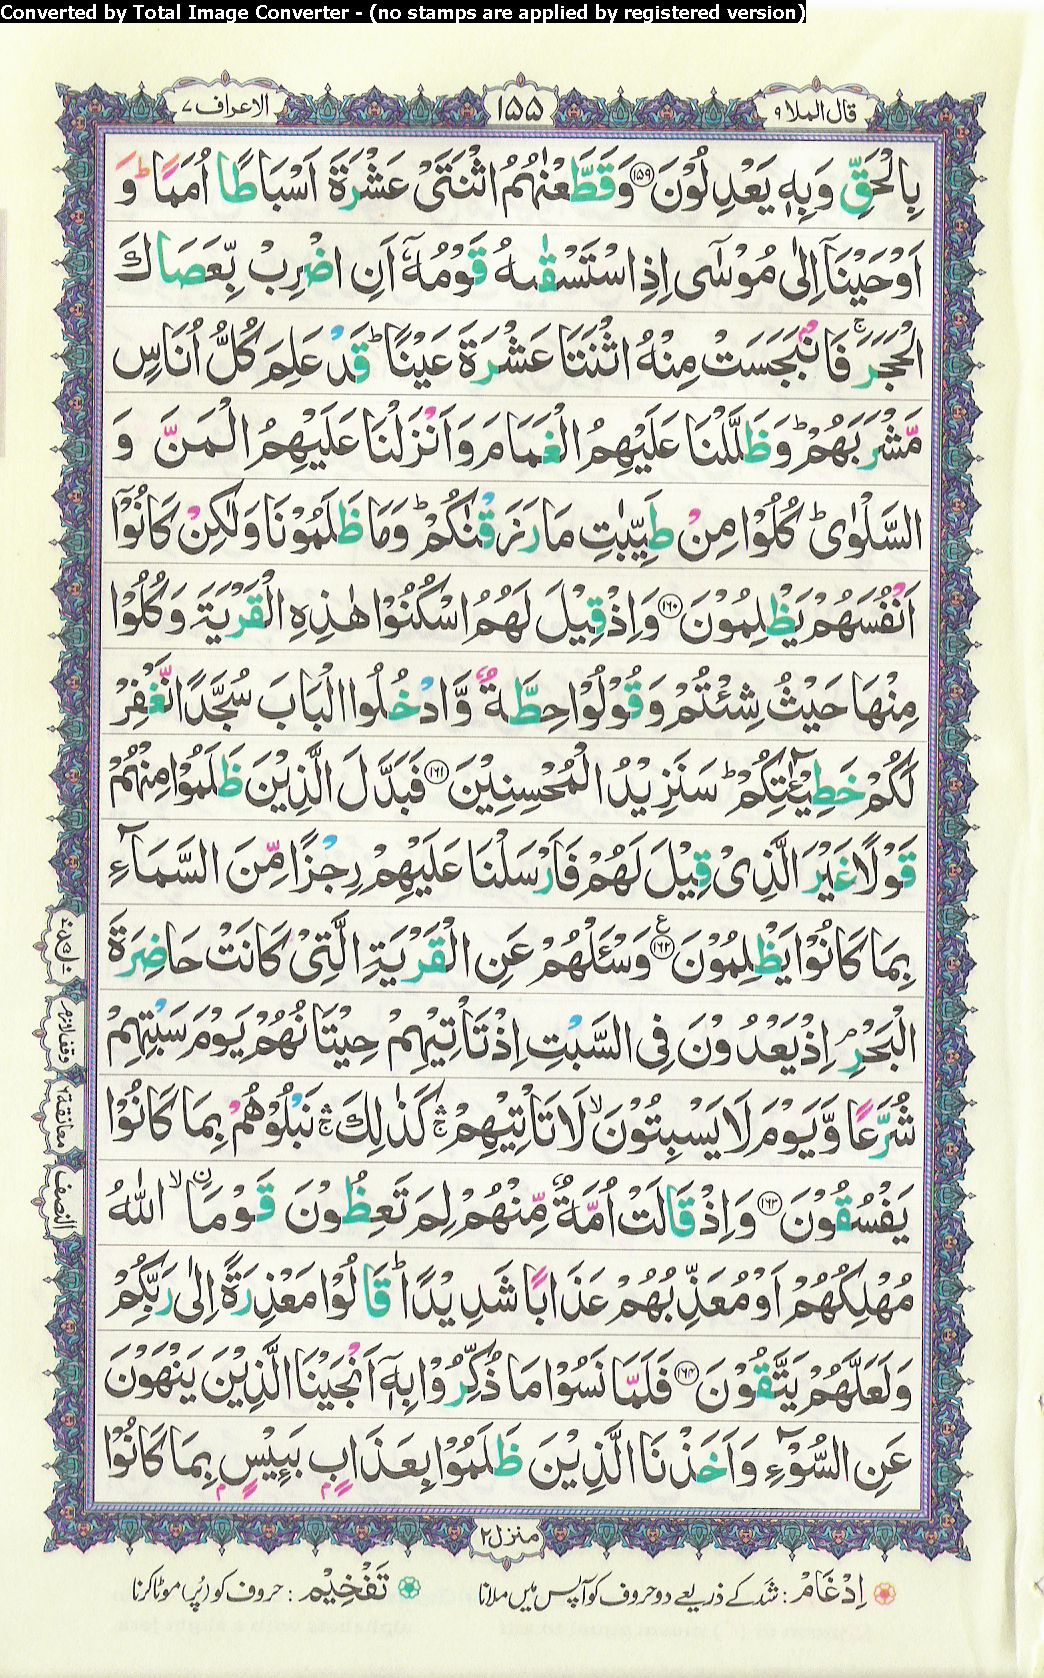 Converted by Total Image Converter - (no stamps are applied by registered version)
قال الملا ۹
۱۵۵
الاعراف ۷
بِالْحَقِّ وَبِهٖ يَعْدِلُوْنَ ۝۱۵۹ وَقَطَّعْنٰهُمُ اثْنَتَىْ عَشْرَةَ اَسْبَاطًا اُمَمًا ؕ وَ
اَوْحَيْنَاۤ اِلٰى مُوْسٰۤى اِذِ اسْتَسْقٰىهُ قَوْمُهٗۤ اَنِ اضْرِبْ بِّعَصَاكَ
الْحَجَرَ ۚ فَانْۢبَجَسَتْ مِنْهُ اثْنَتَا عَشْرَةَ عَيْنًا ؕ قَدْ عَلِمَ كُلُّ اُنَاسٍ
مَّشْرَبَهُمْ ؕ وَظَلَّلْنَا عَلَيْهِمُ الْغَمَامَ وَاَنْزَلْنَا عَلَيْهِمُ الْمَنَّ وَ
السَّلْوٰى ؕ كُلُوْا مِنْ طَيِّبٰتِ مَا رَزَقْنٰكُمْ ؕ وَمَا ظَلَمُوْنَا وَلٰكِنْ كَانُوْۤا
اَنْفُسَهُمْ يَظْلِمُوْنَ ۝۱۶۰ وَاِذْ قِيْلَ لَهُمُ اسْكُنُوْا هٰذِهِ الْقَرْيَةَ وَكُلُوْا
مِنْهَا حَيْثُ شِئْتُمْ وَقُوْلُوْا حِطَّةٌ وَّادْخُلُوا الْبَابَ سُجَّدًا نَّغْفِرْ
لَكُمْ خَطِيْٓـٰٔتِكُمْ ؕ سَنَزِيْدُ الْمُحْسِنِيْنَ ۝۱۶۱ فَبَدَّلَ الَّذِيْنَ ظَلَمُوْا مِنْهُمْ
قَوْلًا غَيْرَ الَّذِىْ قِيْلَ لَهُمْ فَاَرْسَلْنَا عَلَيْهِمْ رِجْزًا مِّنَ السَّمَآءِ
بِمَا كَانُوْا يَظْلِمُوْنَ ۝۱۶۲ ع وَسْـَٔلْهُمْ عَنِ الْقَرْيَةِ الَّتِىْ كَانَتْ حَاضِرَةَ
الْبَحْرِ ۘ اِذْ يَعْدُوْنَ فِى السَّبْتِ اِذْ تَاْتِيْهِمْ حِيْتَانُهُمْ يَوْمَ سَبْتِهِمْ
شُرَّعًا وَّيَوْمَ لَا يَسْبِتُوْنَ ۙ لَا تَاْتِيْهِمْ ۛۚ كَذٰلِكَ ۛۚ نَبْلُوْهُمْ بِمَا كَانُوْا
يَفْسُقُوْنَ ۝۱۶۳ وَاِذْ قَالَتْ اُمَّةٌ مِّنْهُمْ لِمَ تَعِظُوْنَ قَوْمَا ِۨ ۙ اللّٰهُ
مُهْلِكُهُمْ اَوْ مُعَذِّبُهُمْ عَذَابًا شَدِيْدًا ؕ قَالُوْا مَعْذِرَةً اِلٰى رَبِّكُمْ
وَلَعَلَّهُمْ يَتَّقُوْنَ ۝۱۶۴ فَلَمَّا نَسُوْا مَا ذُكِّرُوْا بِهٖۤ اَنْجَيْنَا الَّذِيْنَ يَنْهَوْنَ
عَنِ السُّوْٓءِ وَاَخَذْنَا الَّذِيْنَ ظَلَمُوْا بِعَذَابٍۭ بَـِٔيْسٍۭ بِمَا كَانُوْا
وقف لازم
معانقة ۶
النصف
منزل ۲
اِدْغَامْ : شَد کے ذریعے دو حروف کو آپس میں ملانا
تَفْخِيْم : حروف کو (پُر) موٹا کرنا